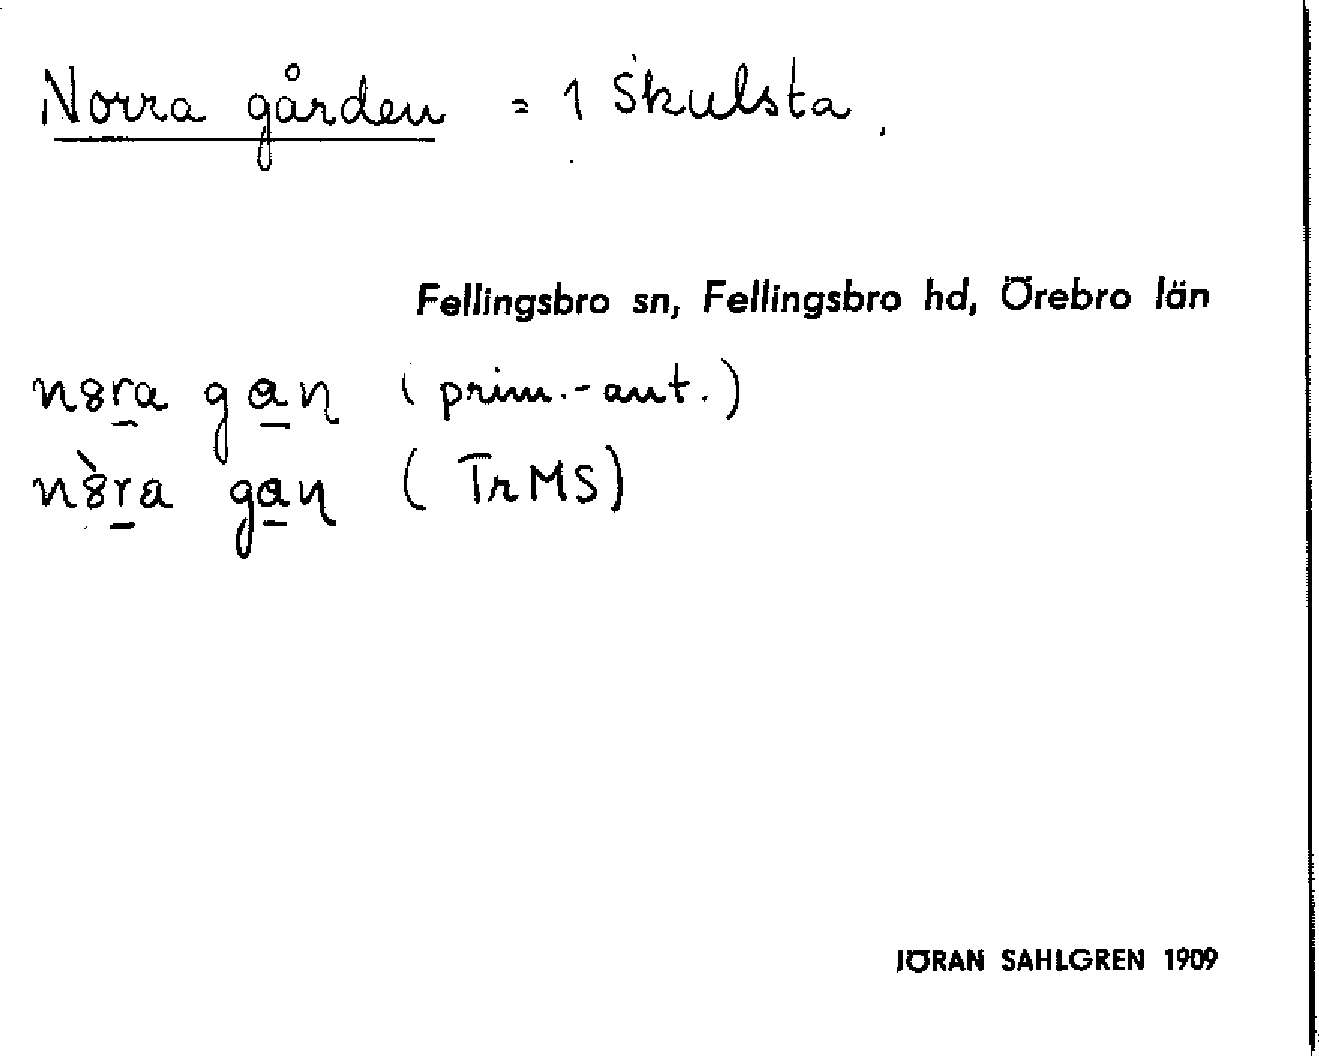 Norra gården = 1 Skulsta
Fellingsbro sn, Fellingsbro hd, Örebro län
(prim.-ant.)
(TrMS)
JÖRAN SAHLGREN 1909